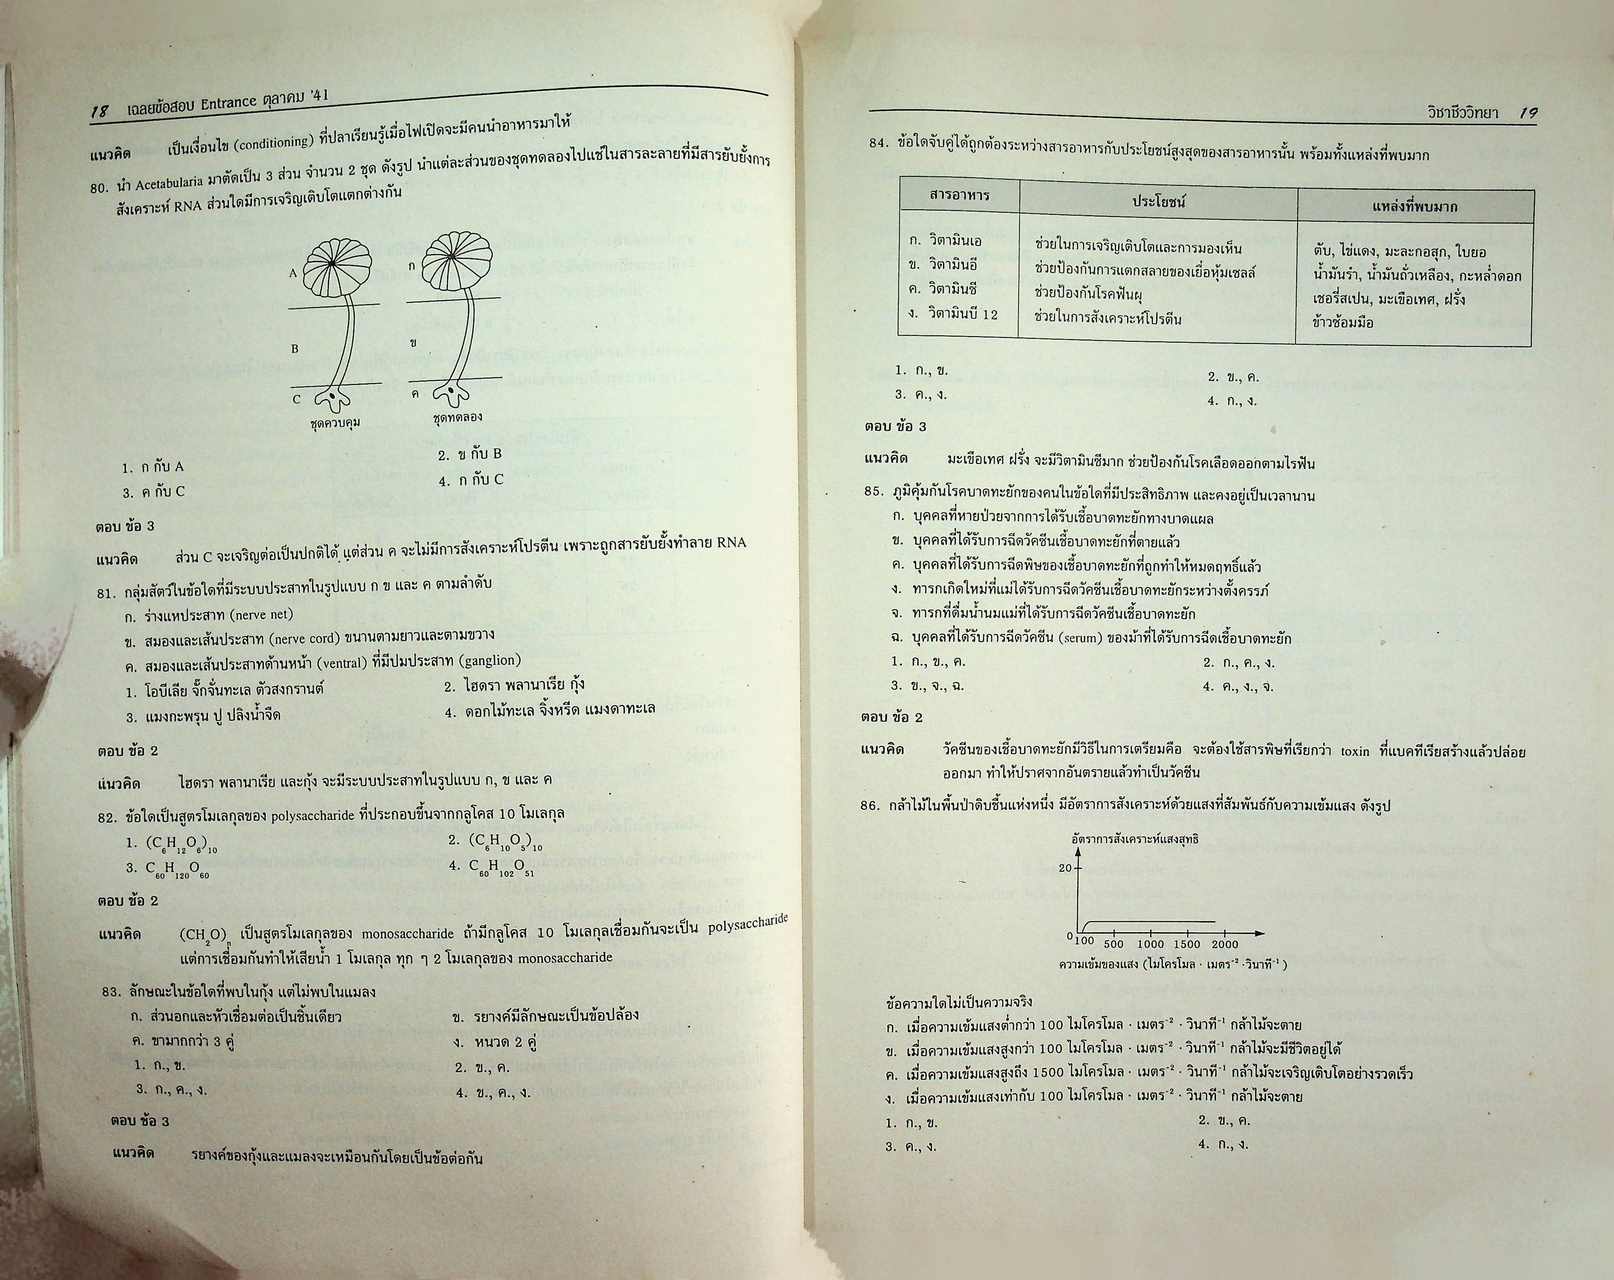 18 เฉลยข้อสอบ Entrance ตุลาคม '41
แนวคิด เป็นเงื่อนไข (conditioning) ที่ปลาเรียนรู้เมื่อไฟเปิดจะมีคนนำอาหารมาให้
80. นำ Acetabularia มาตัดเป็น 3 ส่วน จำนวน 2 ชุด ดังรูป นำแต่ละส่วนของชุดทดลองไปแช่ในสารละลายที่มีสารยับยั้งการ
สังเคราะห์ RNA ส่วนใดมีการเจริญเติบโตแตกต่างกัน
A ก
B ข
C ค
ชุดควบคุม ชุดทดลอง
1. ก กับ A 2. ข กับ B
3. ค กับ C 4. ก กับ C
ตอบ ข้อ 3
แนวคิด ส่วน C จะเจริญต่อเป็นปกติได้ แต่ส่วน ค จะไม่มีการสังเคราะห์โปรตีน เพราะถูกสารยับยั้งทำลาย RNA
81. กลุ่มสัตว์ในข้อใดที่มีระบบประสาทในรูปแบบ ก ข และ ค ตามลำดับ
ก. ร่างแหประสาท (nerve net)
ข. สมองและเส้นประสาท (nerve cord) ขนานตามยาวและตามขวาง
ค. สมองและเส้นประสาทด้านหน้า (ventral) ที่มีปมประสาท (ganglion)
1. โอบีเลีย จั๊กจั่นทะเล ตัวสงกรานต์ 2. ไฮดรา พลานาเรีย กุ้ง
3. แมงกะพรุน ปู ปลิงน้ำจืด 4. ดอกไม้ทะเล จิ้งหรีด แมงดาทะเล
ตอบ ข้อ 2
แนวคิด ไฮดรา พลานาเรีย และกุ้ง จะมีระบบประสาทในรูปแบบ ก, ข และ ค
82. ข้อใดเป็นสูตรโมเลกุลของ polysaccharide ที่ประกอบขึ้นจากกลูโคส 10 โมเลกุล
1. (C₆H₁₂O₆)₁₀ 2. (C₆H₁₀O₅)₁₀
3. C₆₀H₁₂₀O₆₀ 4. C₆₀H₁₀₂O₅₁
ตอบ ข้อ 2
แนวคิด (CH₂O)ₙ เป็นสูตรโมเลกุลของ monosaccharide ถ้ามีกลูโคส 10 โมเลกุลเชื่อมกันจะเป็น polysaccharide
แต่การเชื่อมกันทำให้เสียน้ำ 1 โมเลกุล ทุก ๆ 2 โมเลกุลของ monosaccharide
83. ลักษณะในข้อใดที่พบในกุ้ง แต่ไม่พบในแมลง
ก. ส่วนอกและหัวเชื่อมต่อเป็นชิ้นเดียว ข. รยางค์มีลักษณะเป็นข้อปล้อง
ค. ขามากกว่า 3 คู่ ง. หนวด 2 คู่
1. ก., ข. 2. ข., ค.
3. ก., ค., ง. 4. ข., ค., ง.
ตอบ ข้อ 3
แนวคิด รยางค์ของกุ้งและแมลงจะเหมือนกันโดยเป็นข้อต่อกัน
วิชาชีววิทยา 19
84. ข้อใดจับคู่ได้ถูกต้องระหว่างสารอาหารกับประโยชน์สูงสุดของสารอาหารนั้น พร้อมทั้งแหล่งที่พบมาก
สารอาหาร ประโยชน์ แหล่งที่พบมาก
ก. วิตามินเอ ช่วยในการเจริญเติบโตและการมองเห็น ตับ, ไข่แดง, มะละกอสุก, ใบยอ
ข. วิตามินอี ช่วยป้องกันการแตกสลายของเยื่อหุ้มเซลล์ น้ำมันรำ, น้ำมันถั่วเหลือง, กะหล่ำดอก
ค. วิตามินซี ช่วยป้องกันโรคฟันผุ เชอรี่สเปน, มะเขือเทศ, ฝรั่ง
ง. วิตามินบี 12 ช่วยในการสังเคราะห์โปรตีน ข้าวซ้อมมือ
1. ก., ข. 2. ข., ค.
3. ค., ง. 4. ก., ง.
ตอบ ข้อ 3
แนวคิด มะเขือเทศ ฝรั่ง จะมีวิตามินซีมาก ช่วยป้องกันโรคเลือดออกตามไรฟัน
85. ภูมิคุ้มกันโรคบาดทะยักของคนในข้อใดที่มีประสิทธิภาพ และคงอยู่เป็นเวลานาน
ก. บุคคลที่หายป่วยจากการได้รับเชื้อบาดทะยักทางบาดแผล
ข. บุคคลที่ได้รับการฉีดวัคซีนเชื้อบาดทะยักที่ตายแล้ว
ค. บุคคลที่ได้รับการฉีดพิษของเชื้อบาดทะยักที่ถูกทำให้หมดฤทธิ์แล้ว
ง. ทารกเกิดใหม่ที่แม่ได้รับการฉีดวัคซีนเชื้อบาดทะยักระหว่างตั้งครรภ์
จ. ทารกที่ดื่มน้ำนมแม่ที่ได้รับการฉีดวัคซีนเชื้อบาดทะยัก
ฉ. บุคคลที่ได้รับการฉีดวัคซีน (serum) ของม้าที่ได้รับการฉีดเชื้อบาดทะยัก
1. ก., ข., ค. 2. ก., ค., ง.
3. ข., จ., ฉ. 4. ค., ง., จ.
ตอบ ข้อ 2
แนวคิด วัคซีนของเชื้อบาดทะยักมีวิธีในการเตรียมคือ จะต้องใช้สารพิษที่เรียกว่า toxin ที่แบคทีเรียสร้างแล้วปล่อย
ออกมา ทำให้ปราศจากอันตรายแล้วทำเป็นวัคซีน
86. กล้าไม้ในพื้นป่าดิบชื้นแห่งหนึ่ง มีอัตราการสังเคราะห์ด้วยแสงที่สัมพันธ์กับความเข้มแสง ดังรูป
อัตราการสังเคราะห์แสงสุทธิ
20
0 100 500 1000 1500 2000
ความเข้มของแสง (ไมโครโมล · เมตร⁻² · วินาที⁻¹)
ข้อความใดไม่เป็นความจริง
ก. เมื่อความเข้มแสงต่ำกว่า 100 ไมโครโมล · เมตร⁻² · วินาที⁻¹ กล้าไม้จะตาย
ข. เมื่อความเข้มแสงสูงกว่า 100 ไมโครโมล · เมตร⁻² · วินาที⁻¹ กล้าไม้จะมีชีวิตอยู่ได้
ค. เมื่อความเข้มแสงสูงถึง 1500 ไมโครโมล · เมตร⁻² · วินาที⁻¹ กล้าไม้จะเจริญเติบโตอย่างรวดเร็ว
ง. เมื่อความเข้มแสงเท่ากับ 100 ไมโครโมล · เมตร⁻² · วินาที⁻¹ กล้าไม้จะตาย
1. ก., ข. 2. ข., ค.
3. ค., ง. 4. ก., ง.